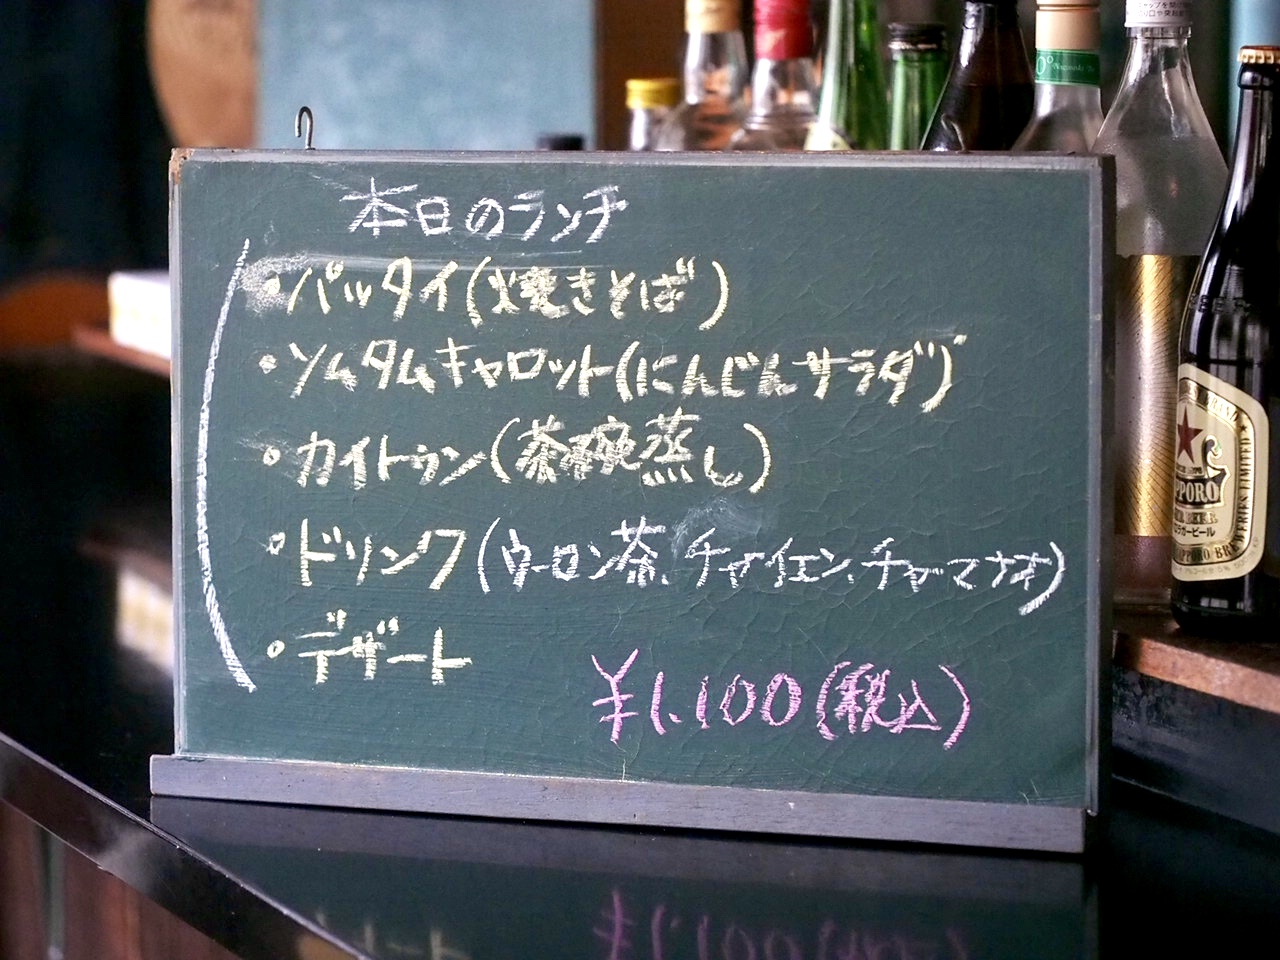 本日のランチ
・パッタイ(焼きそば)
・ソムタムキャロット(にんじんサラダ)
・カイトゥン(茶碗蒸し)
・ドリンク(ウーロン茶、チャイェン、チャーマナオ)
・デザート
¥1,100(税込)
SAPPORO
LAGER BEER
ラガービール
SAPPORO BREWERIES LIMITED